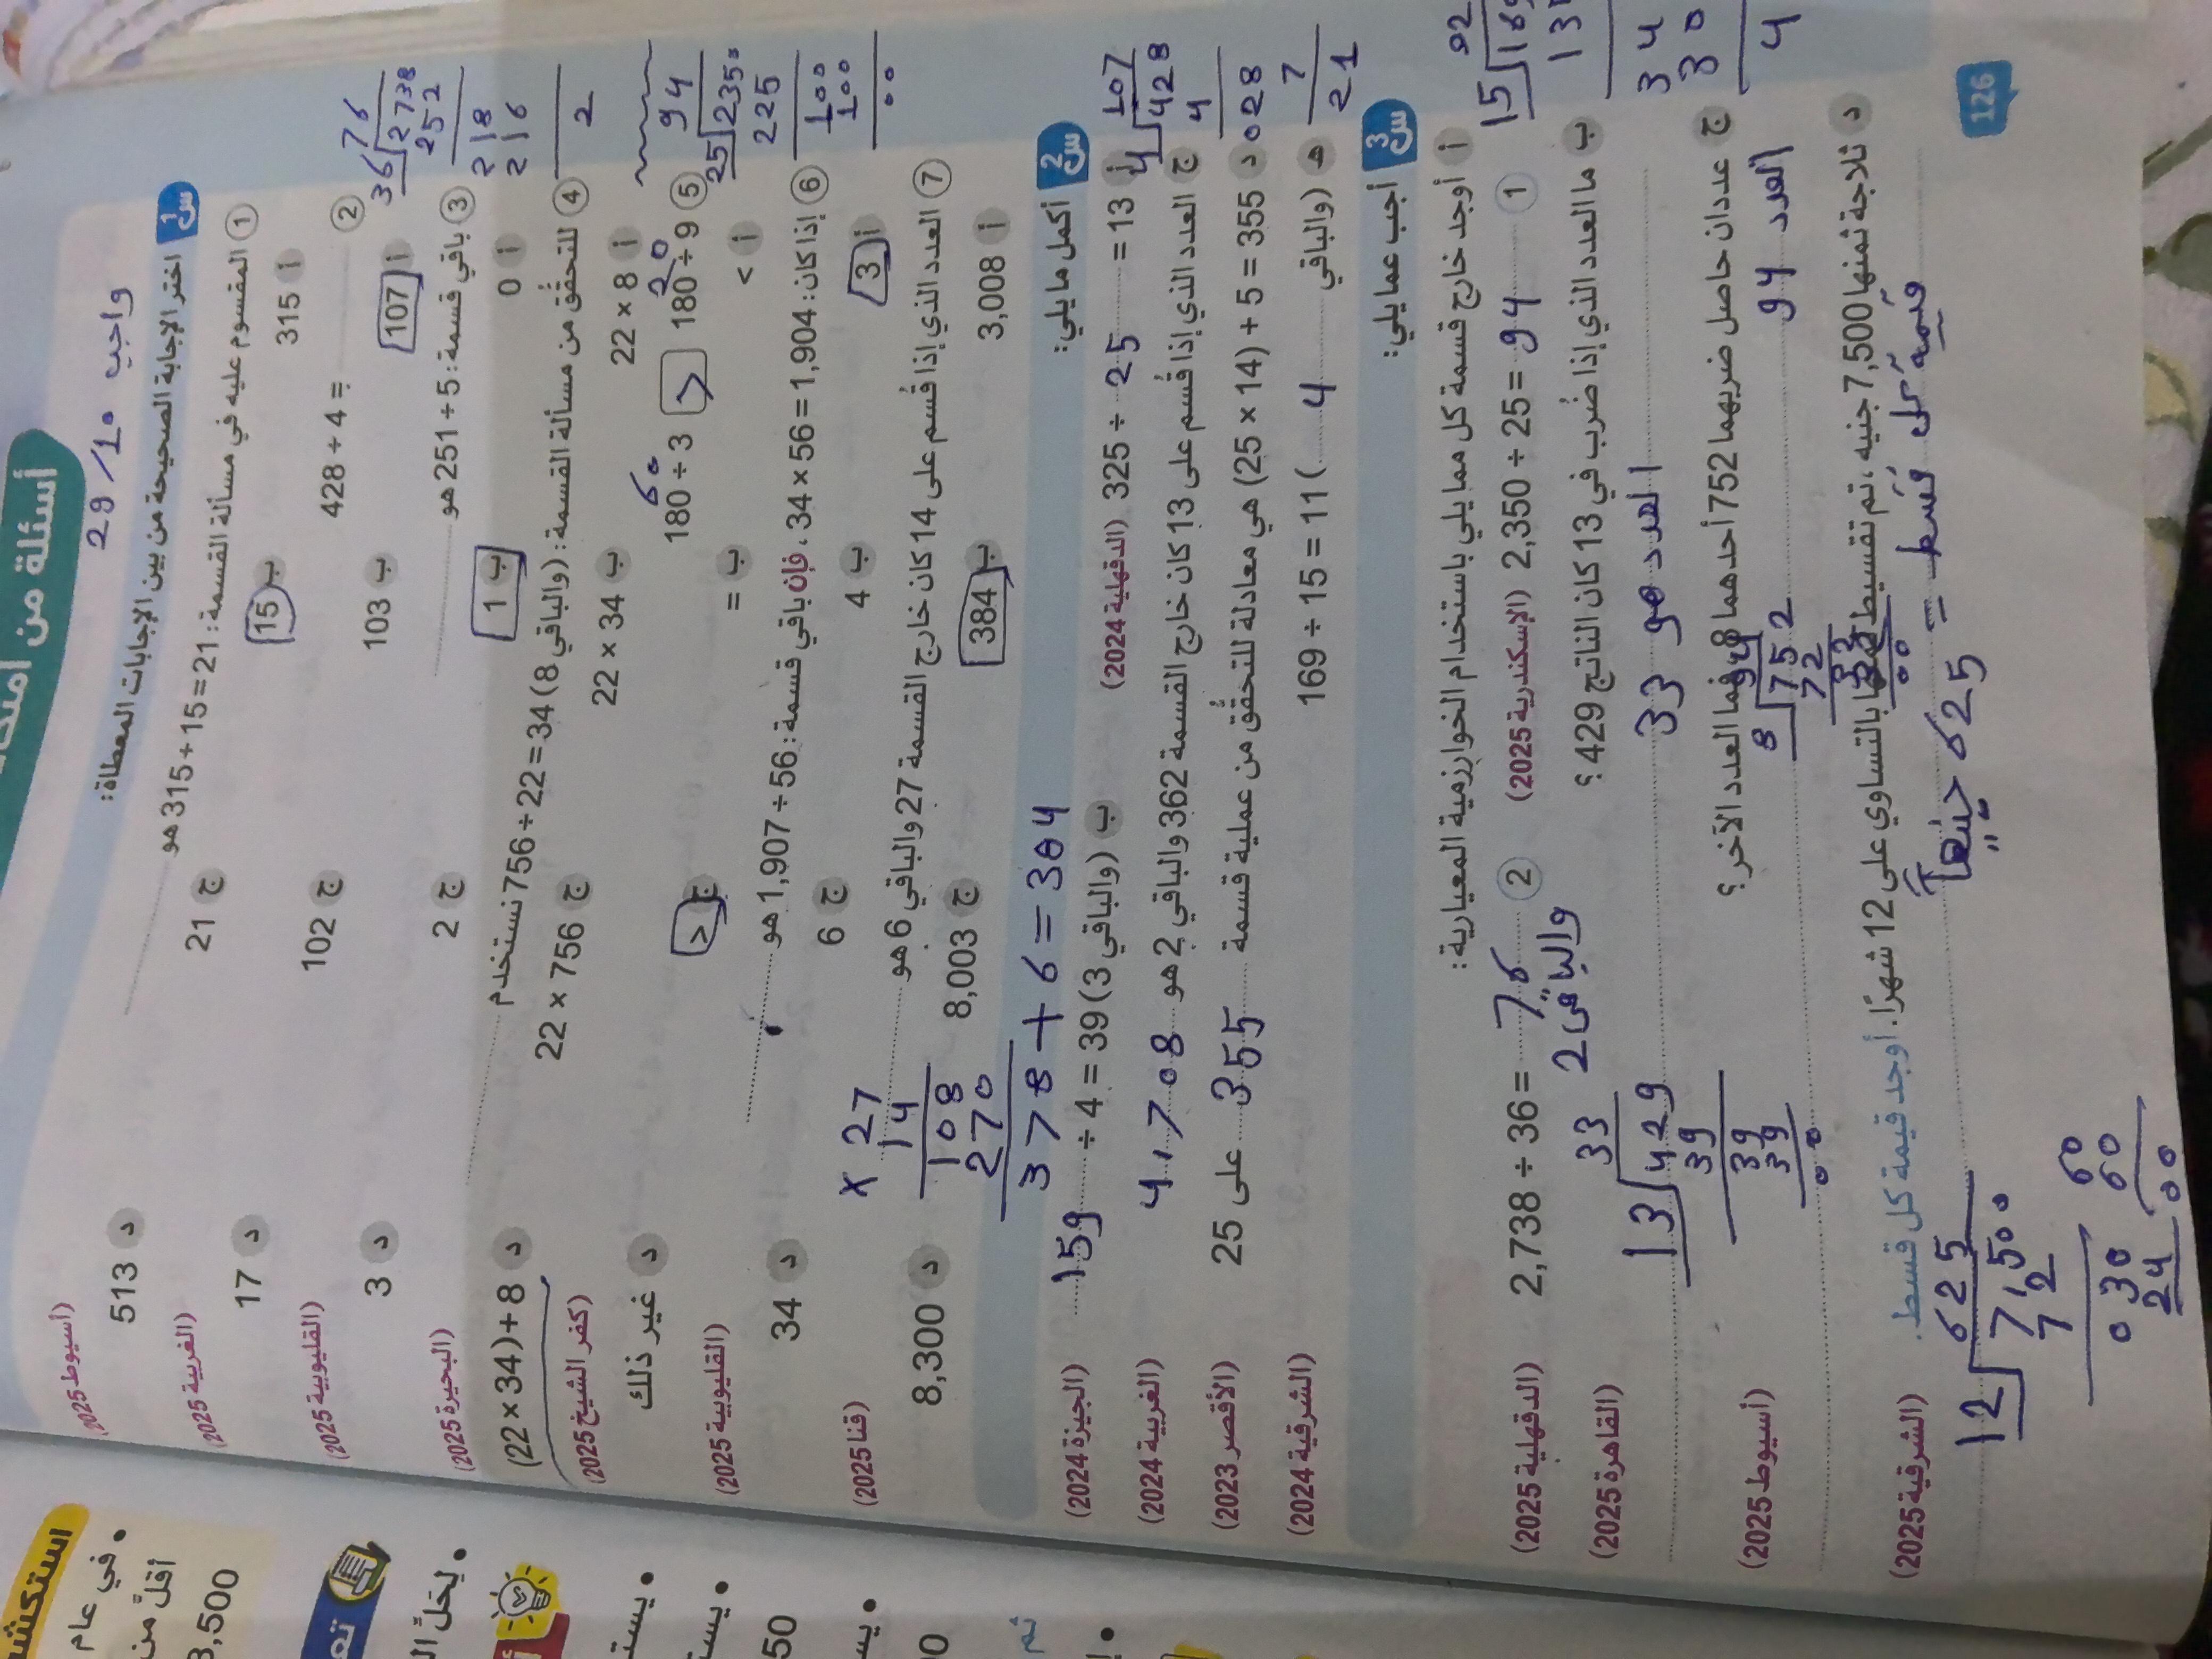 أسئلة من
واجب 29/10
س1 اختر الإجابة الصحيحة من بين الإجابات المعطاة:
1 المقسوم عليه في مسألة القسمة: 21 = 15 ÷ 315 هو (أسيوط 2025)
أ 315 ب 15 ج 21 د 513
2 428 ÷ 4 = (الغربية 2025)
أ 107 ب 103 ج 102 د 17
3 باقي قسمة: 5 ÷ 251 هو (القليوبية 2025)
أ 0 ب 1 ج 2 د 3
4 للتحقُّق من مسألة القسمة: (والباقي 8) 34 = 22 ÷ 756 نستخدم (البحيرة 2025)
أ 22 × 8 ب 22 × 34 ج 22 × 756 د (22 × 34) + 8
5 180 ÷ 9 > 180 ÷ 3 (كفر الشيخ 2025)
20
60
أ > ب = ج < د غير ذلك
6 إذا كان: 1,904 = 56 × 34، فإن باقي قسمة: 56 ÷ 1,907 هو (القليوبية 2025)
أ 3 ب 4 ج 6 د 34
7 العدد الذي إذا قُسم على 14 كان خارج القسمة 27 والباقي 6 هو (قنا 2025)
أ 3,008 ب 384 ج 8,003 د 8,300
× 27
14
108
270
378 + 6 = 384
س2 أكمل ما يلي:
أ 325 ÷ 25 = 13 (الدقهلية 2024)
ب 159 ÷ 4 = 39 (والباقي 3) (الجيزة 2024)
ج العدد الذي إذا قُسم على 13 كان خارج القسمة 362 والباقي 2 هو 4,708 (الغربية 2024)
د 355 = 5 + (25 × 14) هي معادلة للتحقُّق من عملية قسمة 355 على 25 (الأقصر 2023)
هـ 169 ÷ 15 = 11 (والباقي 4) (الشرقية 2024)
س3 أجب عما يلي:
أ أوجد خارج قسمة كل مما يلي باستخدام الخوارزمية المعيارية:
1 2,350 ÷ 25 = 94 (الإسكندرية 2025)
2 2,738 ÷ 36 = 76 (الدقهلية 2025)
والباقى 2
ب ما العدد الذي إذا ضُرب في 13 كان الناتج 429؟ (القاهرة 2025)
العدد هو 33
33
13 429
39
39
39
00
ج عددان حاصل ضربهما 752 أحدهما 8، فما العدد الآخر؟ (أسيوط 2025)
العدد 94
94
8 752
72
32
32
00
د ثلاجة ثمنها 7,500 جنيه، تم تقسيط ثمنها بالتساوي على 12 شهرًا. أوجد قيمة كل قسط. (الشرقية 2025)
قيمة كل قسط = 625 جنيهاً
625
12 7,500
72
030
24
60
60
00
76
36 2738
252
218
216
2
94
25 2350
225
100
100
00
107
4 428
4
028
7
21
15
34
30
4
126
استكشف
في عام
أقلّ من
3,500